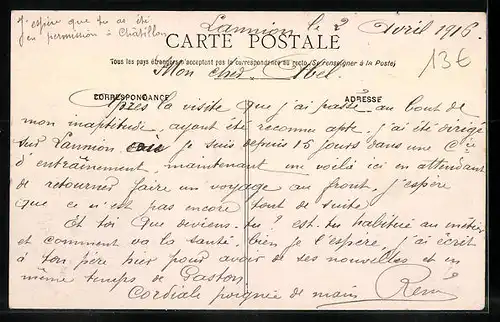 J'espère que tu as été
en permission à Châtillon
Lannion le 2 Avril 1916
CARTE POSTALE
Tous les pays étrangers n'acceptent pas la correspondance au recto (Se renseigner à la Poste)
13€
Mon cher Abel.
CORRESPONDANCE
ADRESSE
Après la visite que j'ai passé au bout de
mon inaptitude, ayant été reconnu apte. j'ai été dirigé
sur Lannion où je suis depuis 15 jours dans une Cie
d'entraînement, maintenant me voilà ici en attendant
de retourner faire un voyage au front, j'espère
que ce n'est pas encore tout de suite
Et toi que deviens-tu? es-tu habitué au métier
et comment va la santé. bien je l'espère, j'ai écrit
à ton père hier pour avoir de ses nouvelles et en
même temps de Gaston
Cordiale poignée de main René